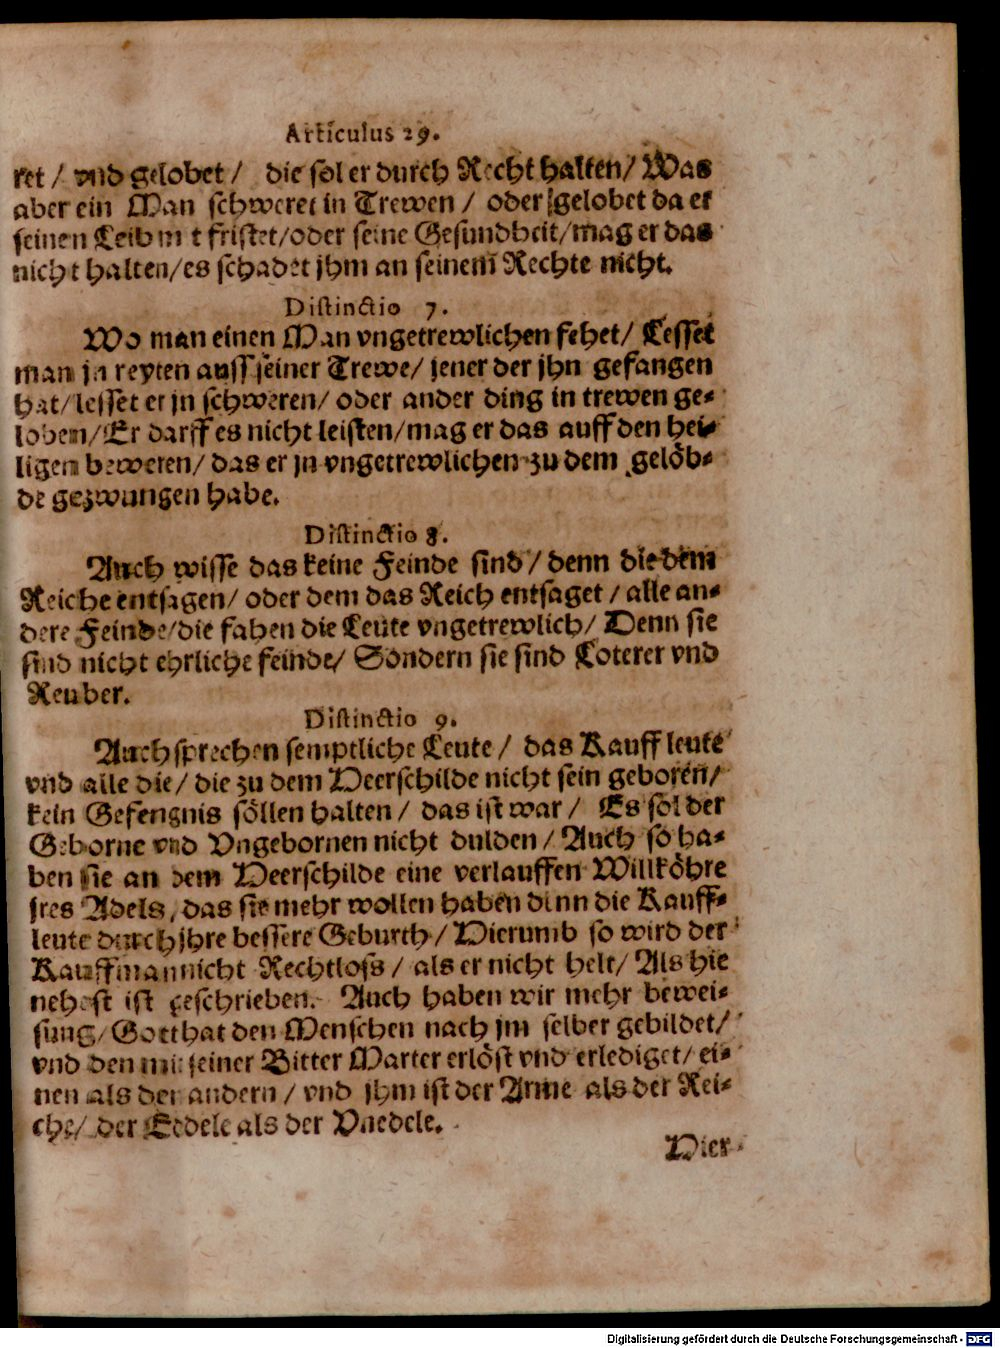 Articulus 29.
ret / vnd gelobet / die sol er durch Recht halten / Was
aber ein Man schweret in Trewen / oder gelobet da er
seinen Leib mit fristet/oder seine Gesundheit/mag er das
nicht halten/es schadet jhm an seinem Rechte nicht.
Distinctio 7.
Wo man einen Man vngetrewlichen fehet/ Lesset
man jn reyten auss seiner Trewe/ jener der jhn gefangen
hat/lesset er jn schweren/ oder ander ding in trewen ge-
loben/Er darff es nicht leisten/mag er das auff den hei-
ligen beweren/ das er jn vngetrewlichen zu dem gelöb-
de gezwungen habe.
Distinctio 8.
Auch wisse das keine Feinde sind / denn die dem
Reiche entsagen/ oder dem das Reich entsaget / alle an-
dere Feinde/die fahen die Leute vngetrewlich/ Denn sie
sind nicht ehrliche feinde/ Sondern sie sind Loterer vnd
Reuber.
Distinctio 9.
Auch sprechen semptliche Leute / das Kauffleute
vnd alle die / die zu dem Heerschilde nicht sein geboren/
kein Gefengnis söllen halten / das ist war / Es sol der
Geborne vnd Vngebornen nicht dulden / Auch so ha-
ben sie an dem Heerschilde eine verlauffen Willköhre
jres Adels, das sie mehr wollen haben dann die Kauff-
leute durch jhre bessere Geburth / Hierumb so wird der
Kauffman nicht Rechtloss / als er nicht helt/ Als hie
nehest ist geschrieben. Auch haben wir mehr bewei-
sung/ Gott hat den Menschen nach jm selber gebildet/
vnd den mit seiner Bitter Marter erlöst vnd erlediget/ ei-
nen als den andern / vnd jhm ist der Arme als der Rei-
che/ der Eedele als der Vnedele.
Hier-
Digitalisierung gefördert durch die Deutsche Forschungsgemeinschaft - DFG